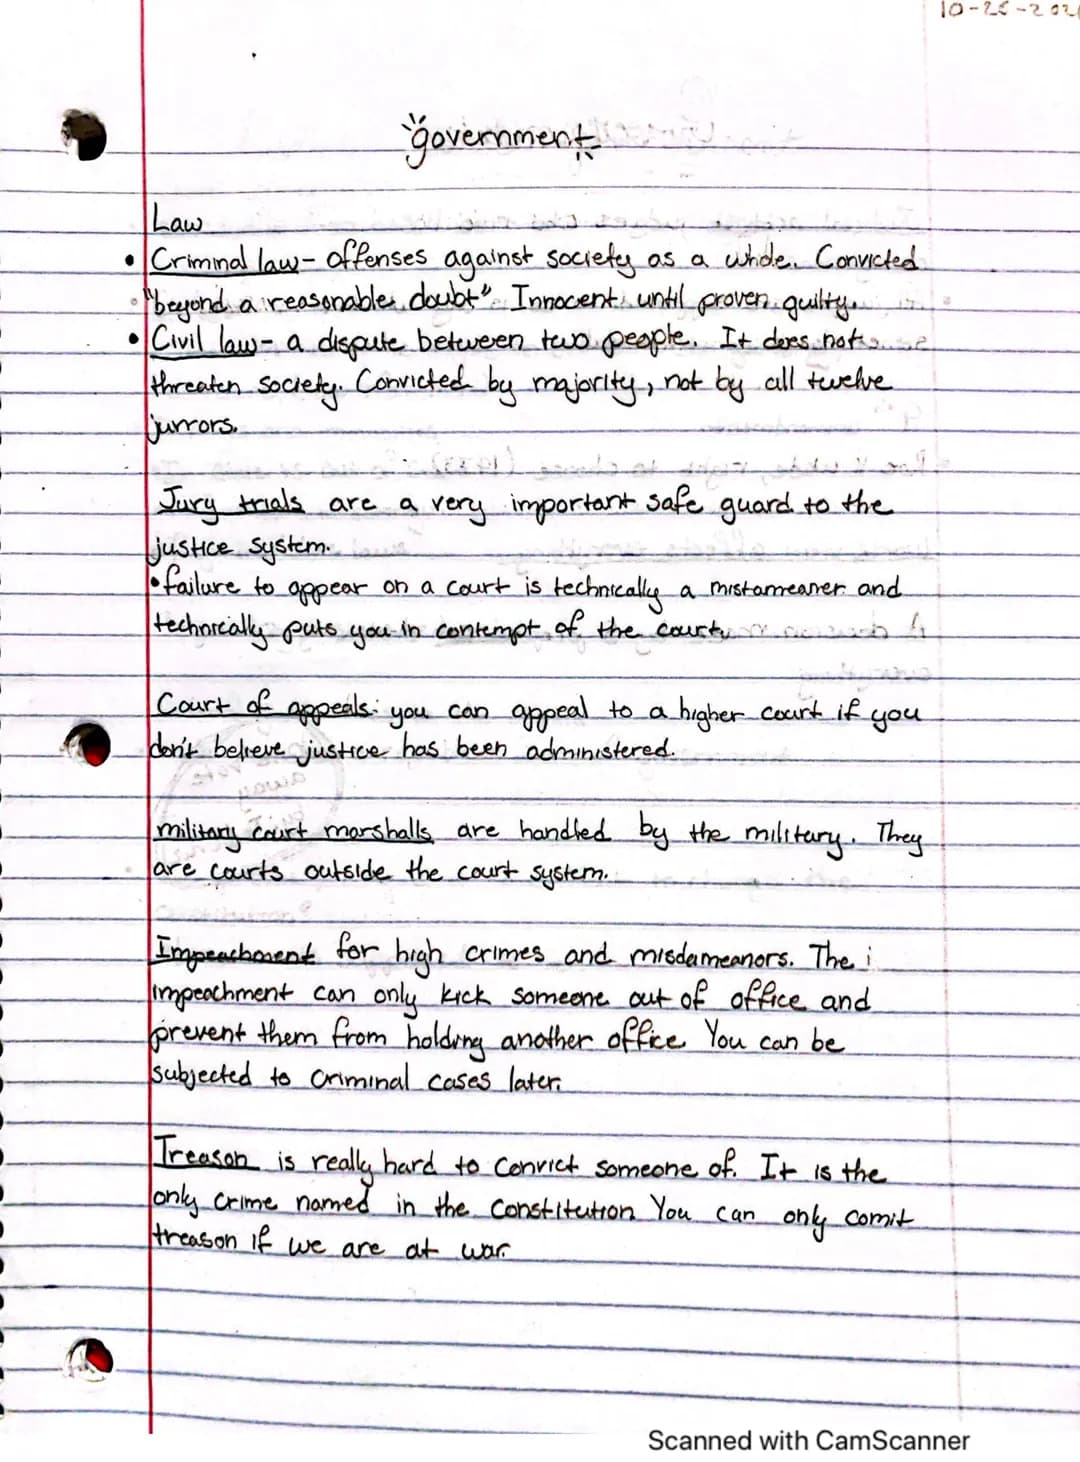 10-25-202
government
Law
• Criminal law- offenses against society as a whole. Convicted
"beyond a reasonable doubt" Innocent until proven guilty.
• Civil law- a dispute between two people. It does not
threaten society. Convicted by majority, not by all twelve
jurrors.
Jury trials are a very important safe guard to the
justice system.
• failure to appear on a court is technically a mistameaner and
technically puts you in contempt of the court
Court of appeals: you can appeal to a higher court if you
don't believe justice has been administered.
military court marshalls are handled by the military. They
are courts outside the court system.
Impeachment for high crimes and misdameanors. The i
impeachment can only kick someone out of office and
prevent them from holding another office You can be
subjected to criminal cases later.
Treason is really hard to convict someone of. It is the
only crime named in the Constitution You can only comit
treason if we are at war.
Scanned with CamScanner